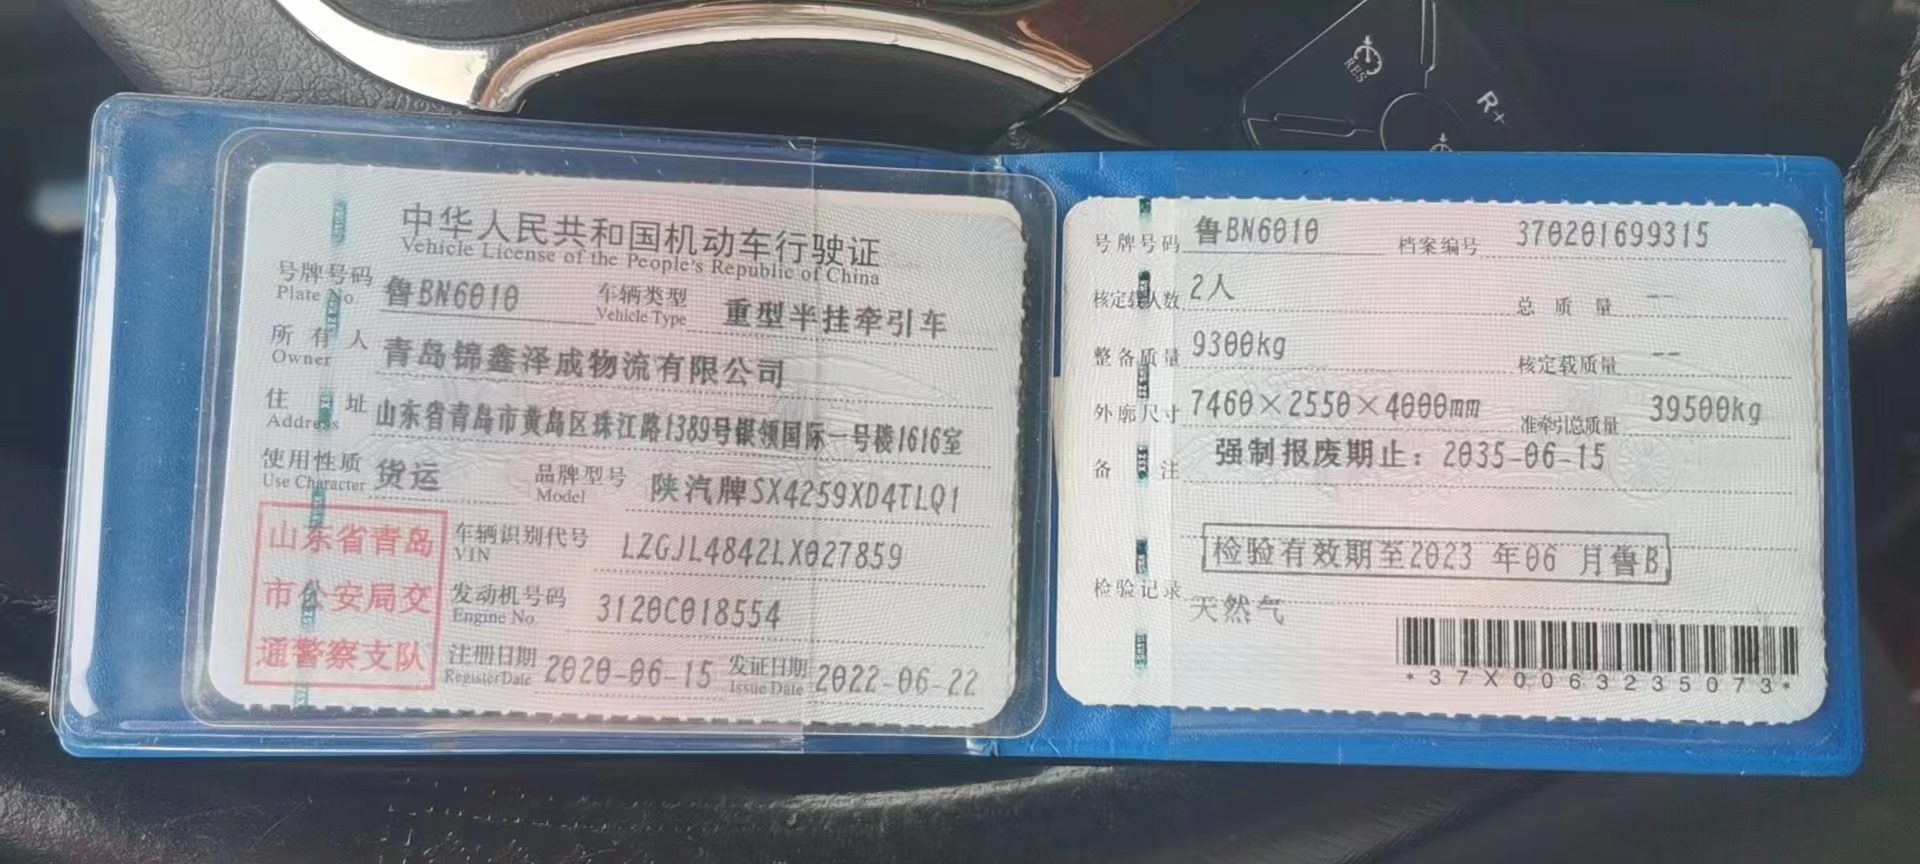 中华人民共和国机动车行驶证
Vehicle License of the People's Republic of China
号牌号码 鲁BN6010 车辆类型 重型半挂牵引车
Plate No Vehicle Type
所有人 青岛锦鑫泽成物流有限公司
Owner
住址 山东省青岛市黄岛区珠江路1389号银领国际一号楼1616室
Address
使用性质 货运 品牌型号 陕汽牌SX4259XD4TLQ1
Use Character Model
山东省青岛
市公安局交
通警察支队
车辆识别代号 LZGJL4842LX027859
VIN
发动机号码 3120C018554
Engine No.
注册日期 2020-06-15 发证日期 2022-06-22
Register Date Issue Date
号牌号码 鲁BN6010 档案编号 370201699315
核定载人数 2人 总质量 --
整备质量 9300kg 核定载质量 --
外廓尺寸 7460×2550×4000mm 准牵引总质量 39500kg
备注 强制报废期止：2035-06-15
检验有效期至2023 年06 月鲁B
检验记录 天然气
*37X0063235073*
RES
R+